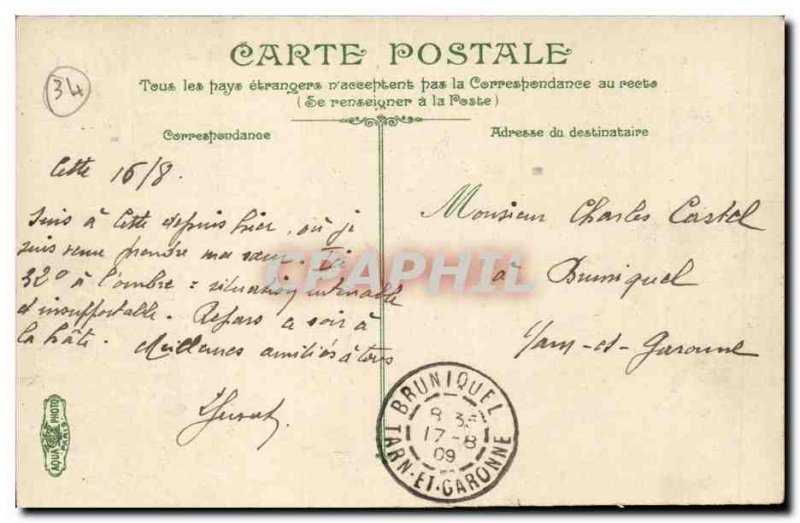 CARTE POSTALE
Tous les pays étrangers n'acceptent pas la Correspondance au recto
(Se renseigner à la Poste)
34
Correspondance
Adresse du destinataire
Cette 16/8.
Suis à Cette depuis hier, où je
suis venu prendre ma sœur. Ici
32° à l'ombre = situation
d'insupportable. Repars ce soir à
la hâte. Meilleures amitiés à tous
Monsieur Charles Castel
à Bruniquel
Tarn-et-Garonne
CPAPHIL
BRUNIQUEL
8 35
17-8
09
TARN-ET-GARONNE
AQUA PHOTO
PARIS